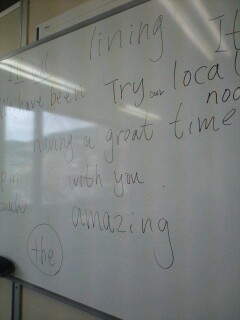 lining It
have been Try our local
having a great time
with you.
amazing
the